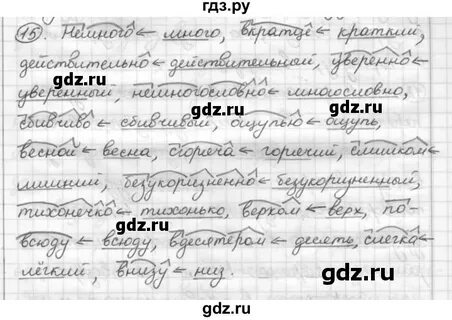 гдз.ру
15. Немного ← много, вкратце ← краткий,
действительно ← действительный, уверенно ←
уверенный, немногословно ← многословно,
сбивчиво ← сбивчивый, ощупью ← ощупь,
весной ← весна, сгоряча ← горячий, слишком ←
лишний, безукоризненно ← безукоризненный,
тихонечко ← тихонько, верхом ← верх, по-
всюду ← всюду, вдесятером ← десять, слегка ←
лёгкий, внизу ← низ.
gdz.ru
gdz.ru
gdz.ru
gdz.ru
gdz.ru
gdz.ru
gdz.ru